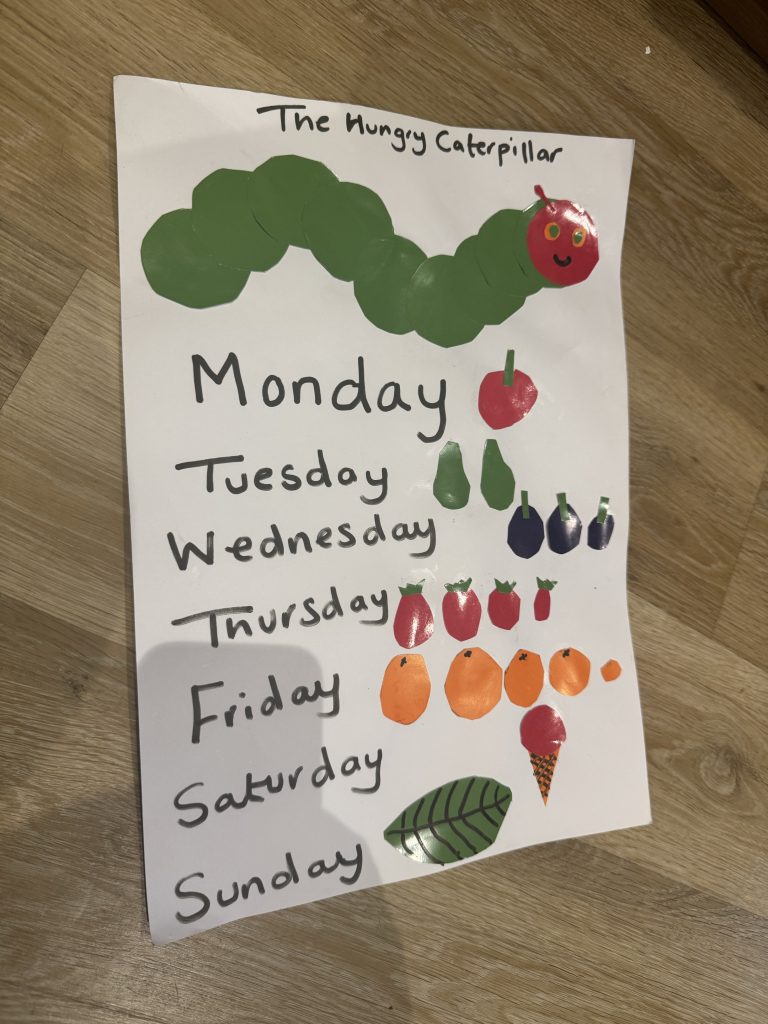 The Hungry Caterpillar
Monday
Tuesday
Wednesday
Thursday
Friday
Saturday
Sunday